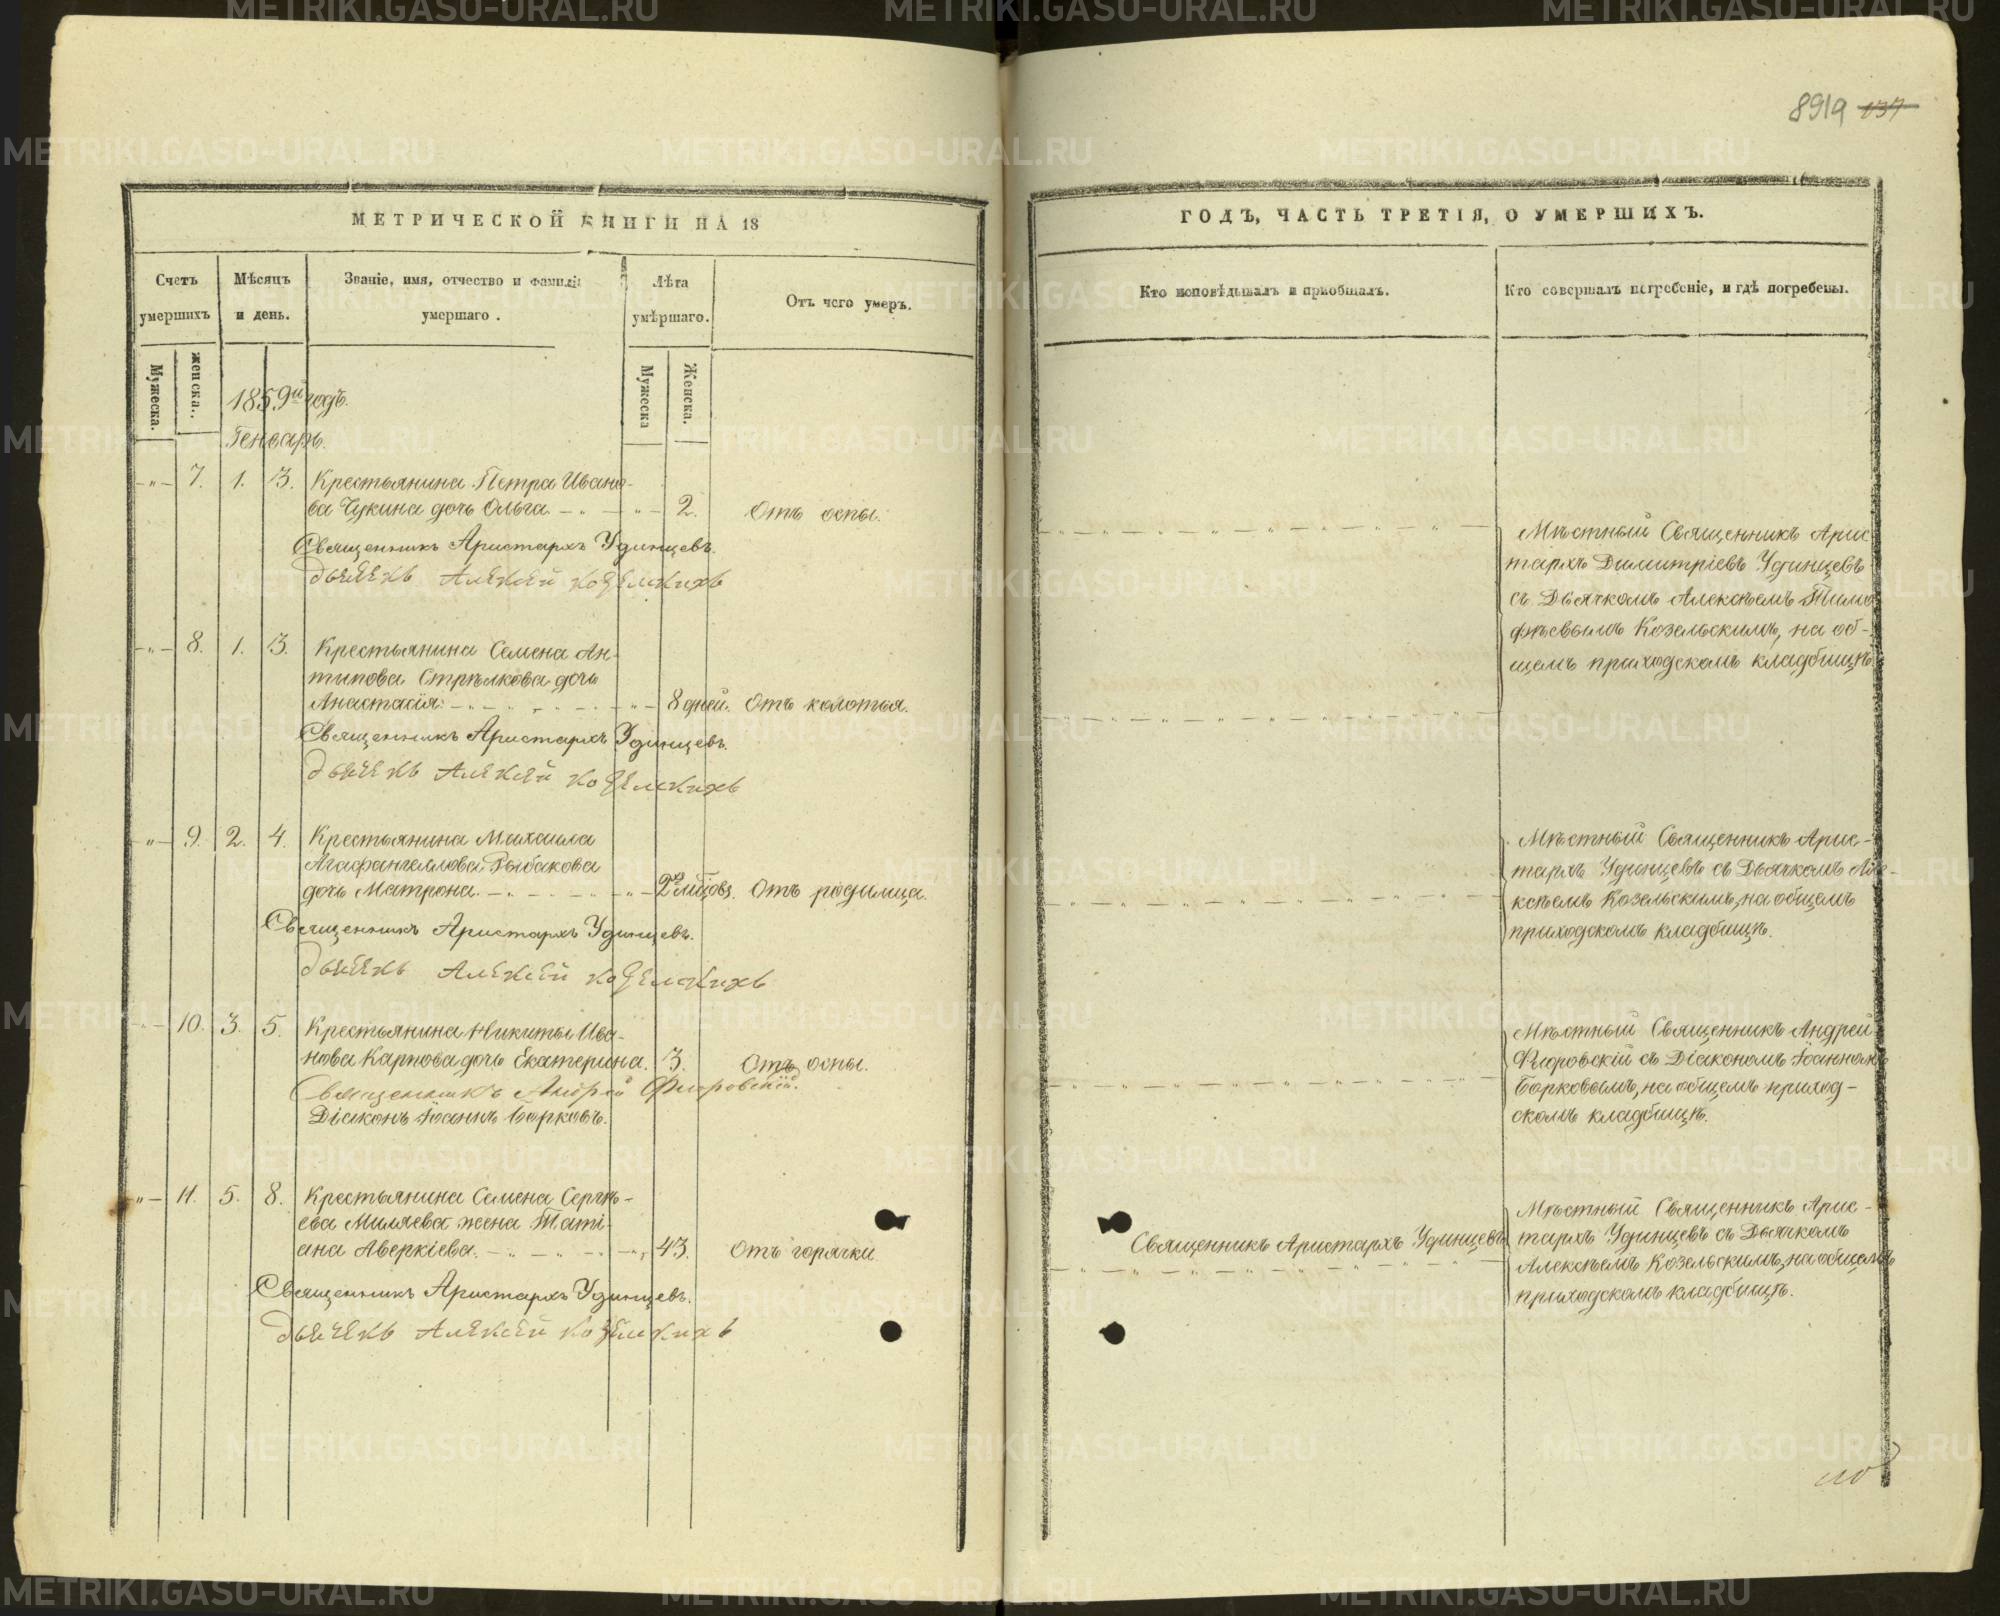 8919 137
МЕТРИЧЕСКОЙ КНИГИ НА 18
Счетъ умершихъ
Мѣсяцъ и день.
Званіе, имя, отчество и фамилія умершаго.
Лѣта умершаго.
Отъ чего умеръ.
Мужеска.
женска.
Мужеска
Женска.
1859й годъ.
Генварь.
7. 1. 3. Крестьянина Петра Ивано-
ва Чукина дочь Ольга. 2. Отъ оспы.
Священникъ Аристархъ Удинцевъ.
Дьячекъ Алексей Козелскихъ
8. 1. 3. Крестьянина Семена Ан-
типова Стрѣлкова дочь
Анастасія. 8 дней. Отъ колотья.
Священникъ Аристархъ Удинцевъ.
Дьячекъ Алексей Козелскихъ
9. 2. 4. Крестьянина Михаила
Агафангелова Рыбакова
дочь Матрона. 2хъ мѣсцовъ. Отъ родимца.
Священникъ Аристархъ Удинцевъ.
Дьячекъ Алексей Козелскихъ
10. 3. 5. Крестьянина Никиты Ива-
нова Карпова дочь Екатерина. 3. Отъ оспы.
Священникъ Андрей Фигровскій.
Діаконъ Іоаннъ Борковъ.
11. 5. 8. Крестьянина Семена Сергѣ-
ева Миляева жена Таті-
ана Аверкіева. 43. Отъ горячки.
Священникъ Аристархъ Удинцевъ.
Дьячекъ Алексей Козелскихъ
ГОДЪ, ЧАСТЬ ТРЕТІЯ, О УМЕРШИХЪ.
Кто исповѣдывалъ и пріобщалъ.
Кто совершалъ погребеніе, и гдѣ погребены.
Мѣстный Священникъ Арис-
тархъ Димитріевъ Удинцевъ
съ Дьячкомъ Алексѣемъ Тимо-
фѣевымъ Козельскимъ, на об-
щемъ приходскомъ кладбищѣ.
Мѣстный Священникъ Арис-
тархъ Удинцевъ съ Дьячкомъ Але-
ксѣемъ Козельскимъ, на общемъ
приходскомъ кладбищѣ.
Мѣстный Священникъ Андрей
Фигровскій съ Діакономъ Іоанномъ
Борковымъ, на общемъ приход-
скомъ кладбищѣ.
Священникъ Аристархъ Удинцевъ
Мѣстный Священникъ Арис-
тархъ Удинцевъ съ Дьячкомъ
Алексѣемъ Козельскимъ, на общемъ
приходскомъ кладбищѣ.
METRIKI.GASO-URAL.RU